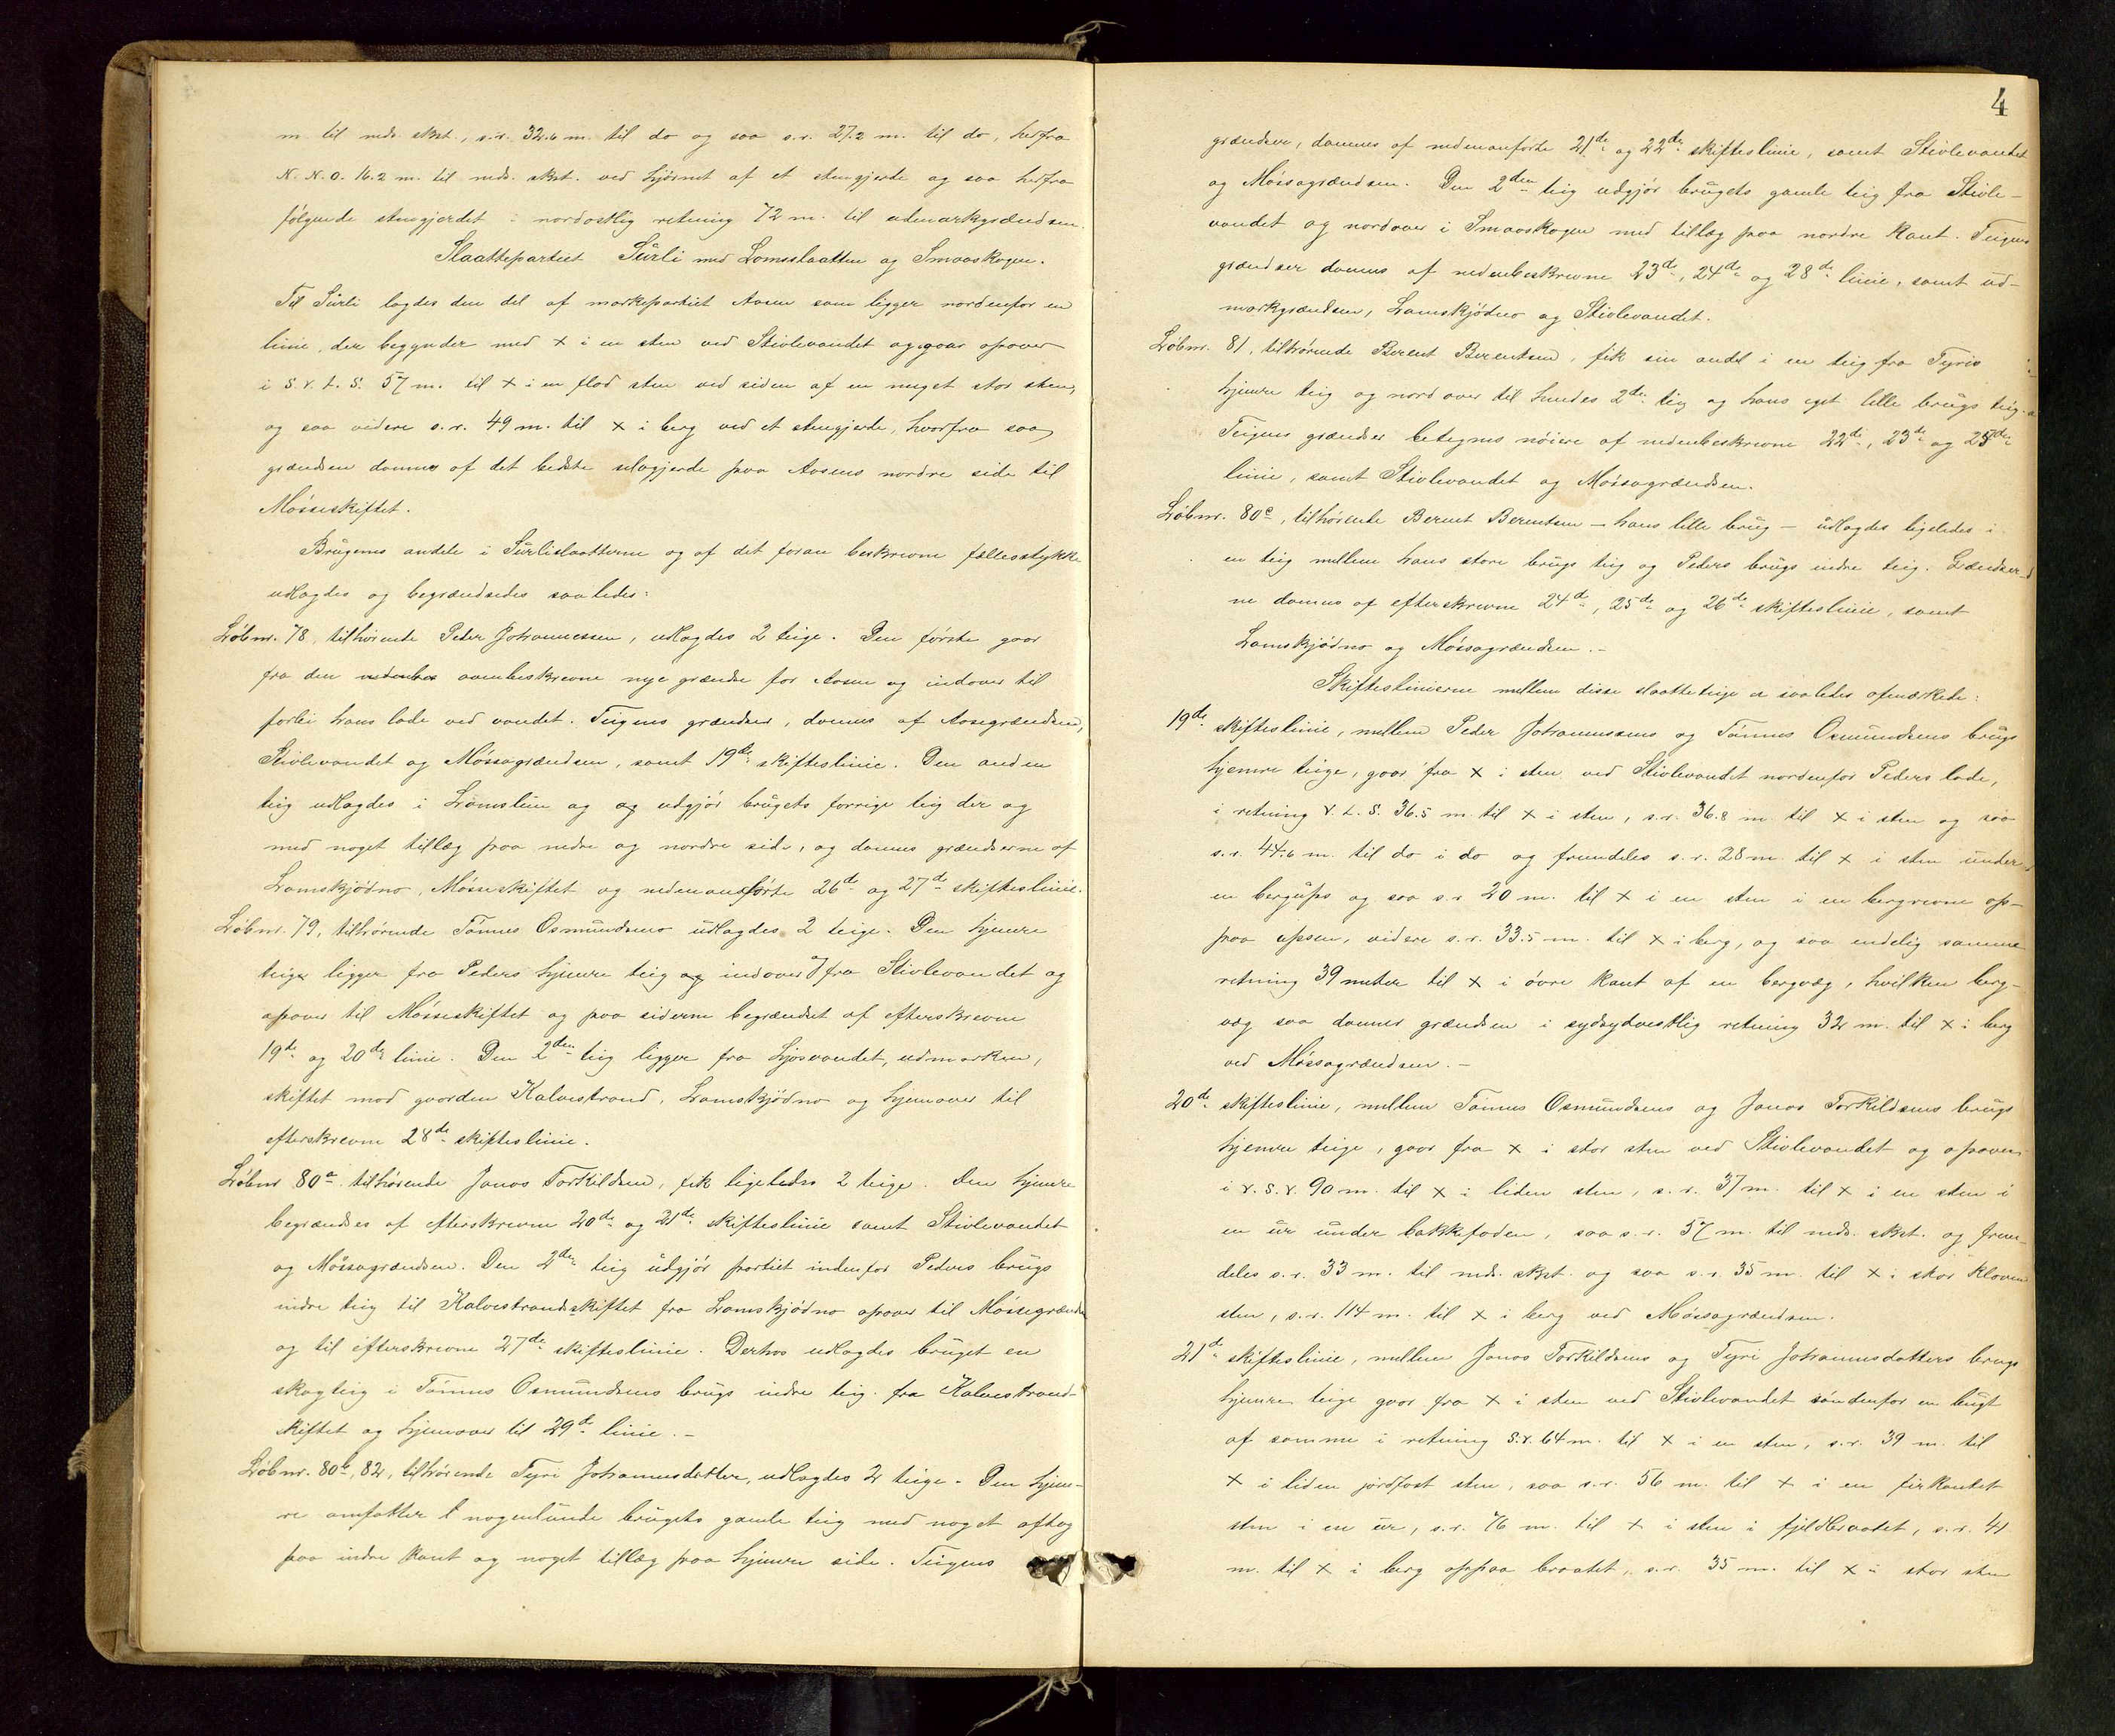 m. til neds. skst., s.r. 32.6 m. til do og saa s.r. 27.2 m. til do, herfra
N.N.O. 16.2 m. til neds. skst. ved hjørnet af et stengjerde og saa herfra
følgende stengjerdet i nordostlig retning 72 m. til udmarkgrændsen.
Slaattepartiet Sürli med Lomsslaatten og Smaaskogen.
Til Sürli lagdes den del af markepartiet Aasen som ligger nordenfor en
linie, der begynder med x i en sten ved Stivlevandet og gaar opover
i S.V.t.S. 57 m. til x i en flad sten ved siden af en meget stor sten,
og saa videre s.r. 49 m. til x i berg ved et stengjerde, hvorfra saa
grændsen dannes af det bedste udogjerde paa Aasens nordre side til
Mósseskiftet.
Brügenes andele i Sürlislaatterne og af det foran beskrevne fællesstykke
udlagdes og begrændsedes saaledes:
Løbnr. 78, tilhørende Peder Johannessen, udlagdes 2 teige. Den første gaar
fra den nedenbes ovenbeskrevne nye grændse for Aasen og indover til
forbi hans lade ved vandet. Teigens grændser, dannes af Aasegrændsen,
Stivlevandet og Móssagrændsen, samt 19de skifteslinie. Den anden
teig udlagdes i Lomslien og og udgjør brügets forrige teig der og
med noget tillæg paa nedre og nordre side, og dannes grændserne af
Lomskjødno, Mósseskiftet og nedenanførte 26de og 27de skifteslinie.
Løbnr. 79, tilhørende Tønnes Osmündsens udlagdes 2 teige. Den hjemre
teige ligger fra Peders hjemre teig og indover fra Stivlevandet og
opover til Mósseskiftet og paa siderne begrændset af efterskrevne
19de og 20de linie. Den 2den teig ligger fra Hjosvandet, udmarken,
skiftet mod gaarden Kalvestrand, Lomskjødno og hjemover til
efterskrevne 28de skifteslinie.
Løbnr 80a tilhørende Jonas Torkildsen, fik ligeledes 2 teige. Den hjemre
begrændses af efterskrevne 20de og 21de skifteslinie samt Stivlevandet
og Móssagrændsen. Den 2den teig üdgjør partiet indenfor Peders brügs
indre teig til Kalvestrandskiftet fra Lomskjødno opover til Móssegrænds
og til efterskrevne 27de skifteslinie. Derhos udlagdes brüget en
skogteig i Tønnes Osmündsens brügs indre teig fra Kalvestrand-
skiftet og hjemover til 29de linie.-
Løbnr. 80b, 82, tilhørende Tyri Johannesdatter, udlagdes 2 teige. Den hjem-
re omfatter nogenlünde brügets gamle teig med noget aftag
paa indre kant og noget tillæg paa hjemre side. Teigens
4
grændser, dannes af nedenanførte 21de og 22de skifteslinie, samt Stivlevandet
og Móssagrændsen. Den 2den teig udgjør brügets gamle teig fra Stivle-
vandet og nordover i Smaaskogen med tillæg paa nordre kant. Teigens
grændser dannes af nedenbeskrevne 23de, 24de og 28de linie, samt üd-
markgrændsen, Lomskjødno og Stivlevandet.
Løbnr. 81, tilhørende Berent Berentsen, fik sin andel i en teig fra Tyris
hjemre teig og nordover til hendes 2den teig og hans eget lille brügs teig.
Teigens grændser betegnes nøiere af nedenbeskrevne 22de, 23de og 25de
linie, samt Stivlevandet og Móssagrændsen.
Løbnr. 80c, tilhørende Berent Berentsen – hans lille brüg – üdlagdes ligeledes i
en teig mellem hans store brügs teig og Peders brügs indre teig. Grændser-
ne dannes af efterskrevne 24de, 25de og 26de skifteslinie, samt
Lomskjødno og Móssagrændsen.-
Skifteslinierne mellem disse slaatteteige er saaledes opmærkede:
19de skifteslinie, mellem Peder Johannesens og Tønnes Osmündsens brügs
hjemre teige, gaar fra x i sten ved Stivlevandet nordenfor Peders lade,
i retning V.t.S. 36.5 m. til x i sten, s.r. 36.8 m. til x i sten og saa
s.r. 44.6 m. til do i do og fremdeles s.r. 28 m. til x i sten ünder
en bergups og saa s.r. 20 m. til x i en sten i en bergrevne op-
paa upsen, videre s.r. 33.5 m. til x i berg, og saa endelig samme
retning 39 meter til x i øvre kant af en bergvæg, hvilken berg-
væg saa danner grændsen i sydsydvestlig retning 32 m. til x i berg
ved Móssagrændsen.-
20de skifteslinie, mellem Tønnes Osmündsens og Jonas Torkildsens brügs
hjemre teige, gaar fra x i stor sten ved Stivlevandet og opover
i V.S.V. 90 m. til x i liden sten, s.r. 37 m. til x i en sten i
en ür ünder bakkefoden, saa s.r. 57 m. til neds. skst. og frem-
deles s.r. 33 m. til neds. skst. og saa s.r. 35 m. til x i stor kloven
sten, s.r. 114 m. til x i berg ved Móssagrændsen.
21de skifteslinie, mellem Jonas Torkildsens og Tyri Johannesdatters brügs
hjemre teige gaar fra x i sten ved Stivlevandet søndenfor en bügt
af samme i retning S.V. 64 m. til x i en sten, s.r. 39 m. til
x i liden jordfast sten, saa s.r. 56 m. til x i en firkantet
sten i en ür, s.r. 76 m. til x i sten i fjeldbraatet, s.r. 41
m. til x i berg oppaa braatet, s.r. 35 m. til x i stor sten